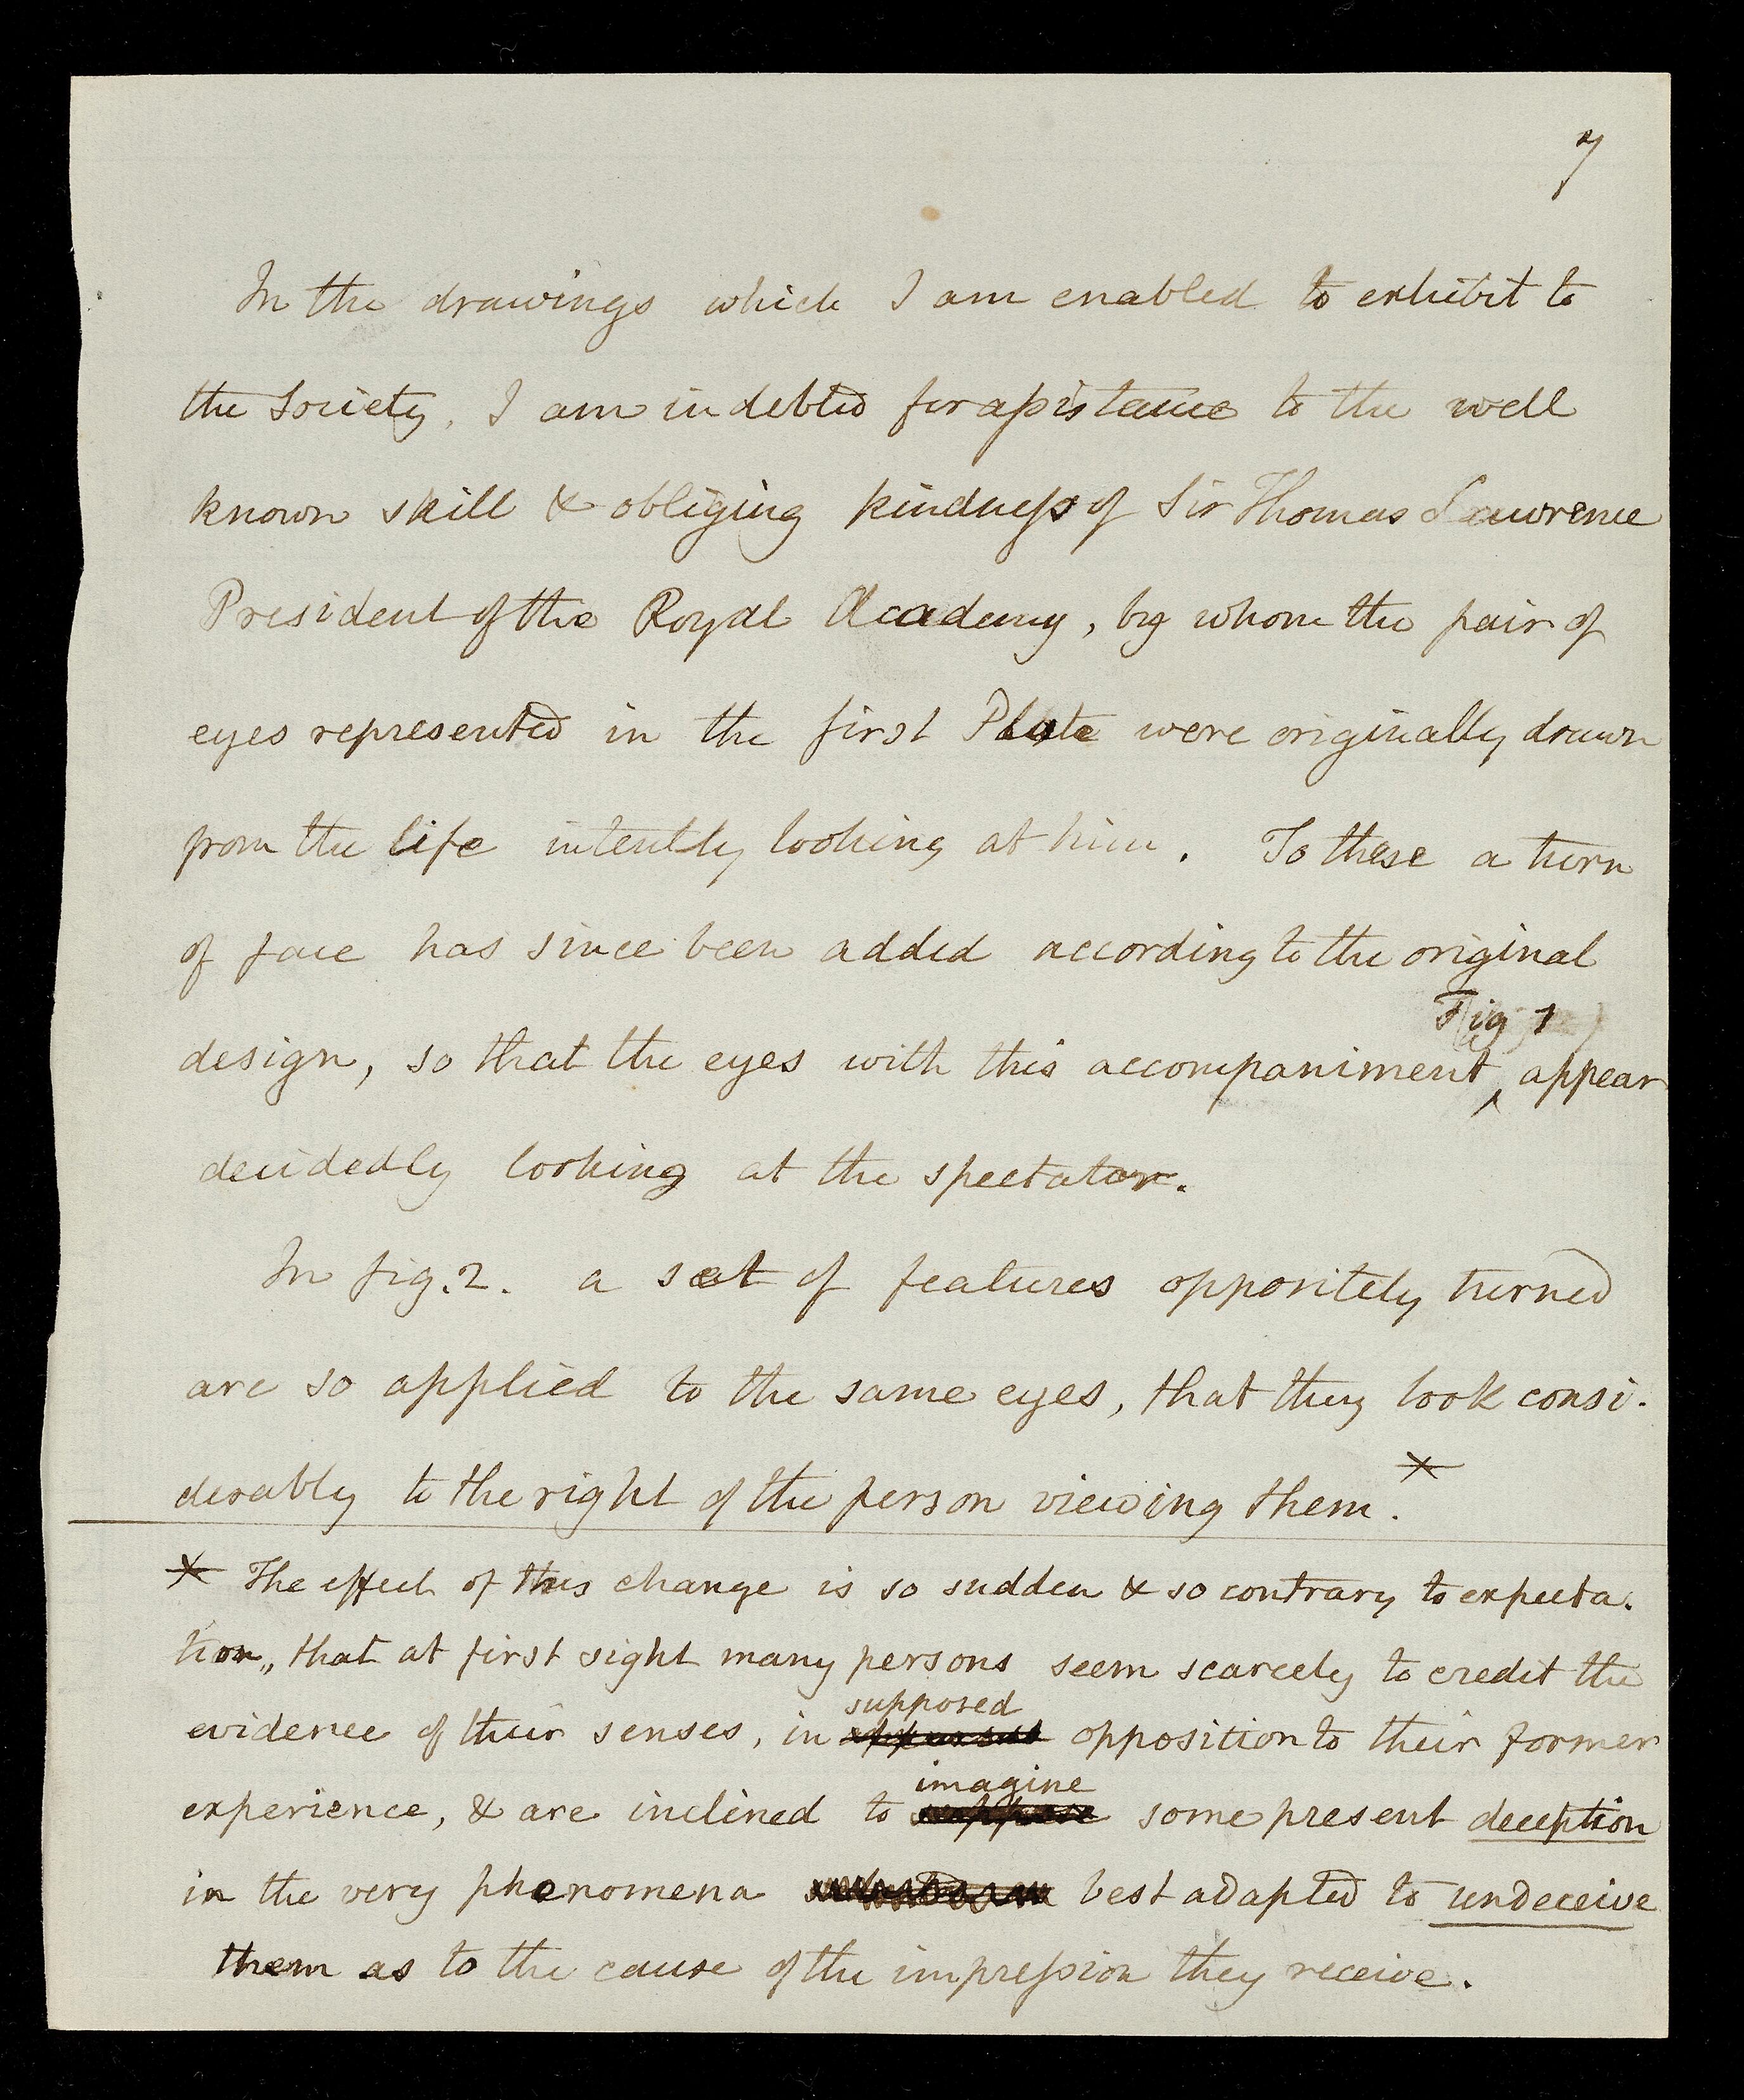 7
In the drawings which I am enabled to exhibit to
the Society, I am indebted for assistance to the well
known skill & obliging kindness of Sir Thomas Lawrence
President of the Royal Academy, by whom the pair of
eyes represented in the first Plate were originally drawn
from the life intently looking at him. To these a turn
of face has since been added according to the original
Fig 1
design, so that the eyes with this accompaniment ‸ appear
decidedly looking at the spectator.
In fig. 2. a set of features oppositely turned
are so applied to the same eyes, that they look consi-
derably to the right of the person viewing them. *
* The effect of this change is so sudden & so contrary to expecta-
tion, that at first sight many persons seem scarcely to credit the
supposed
evidence of their senses, in apparent opposition to their former
imagine
experience, & are inclined to suppose some present deception
in the very phenomena best adapted to undeceive
them as to the cause of the impression they receive.